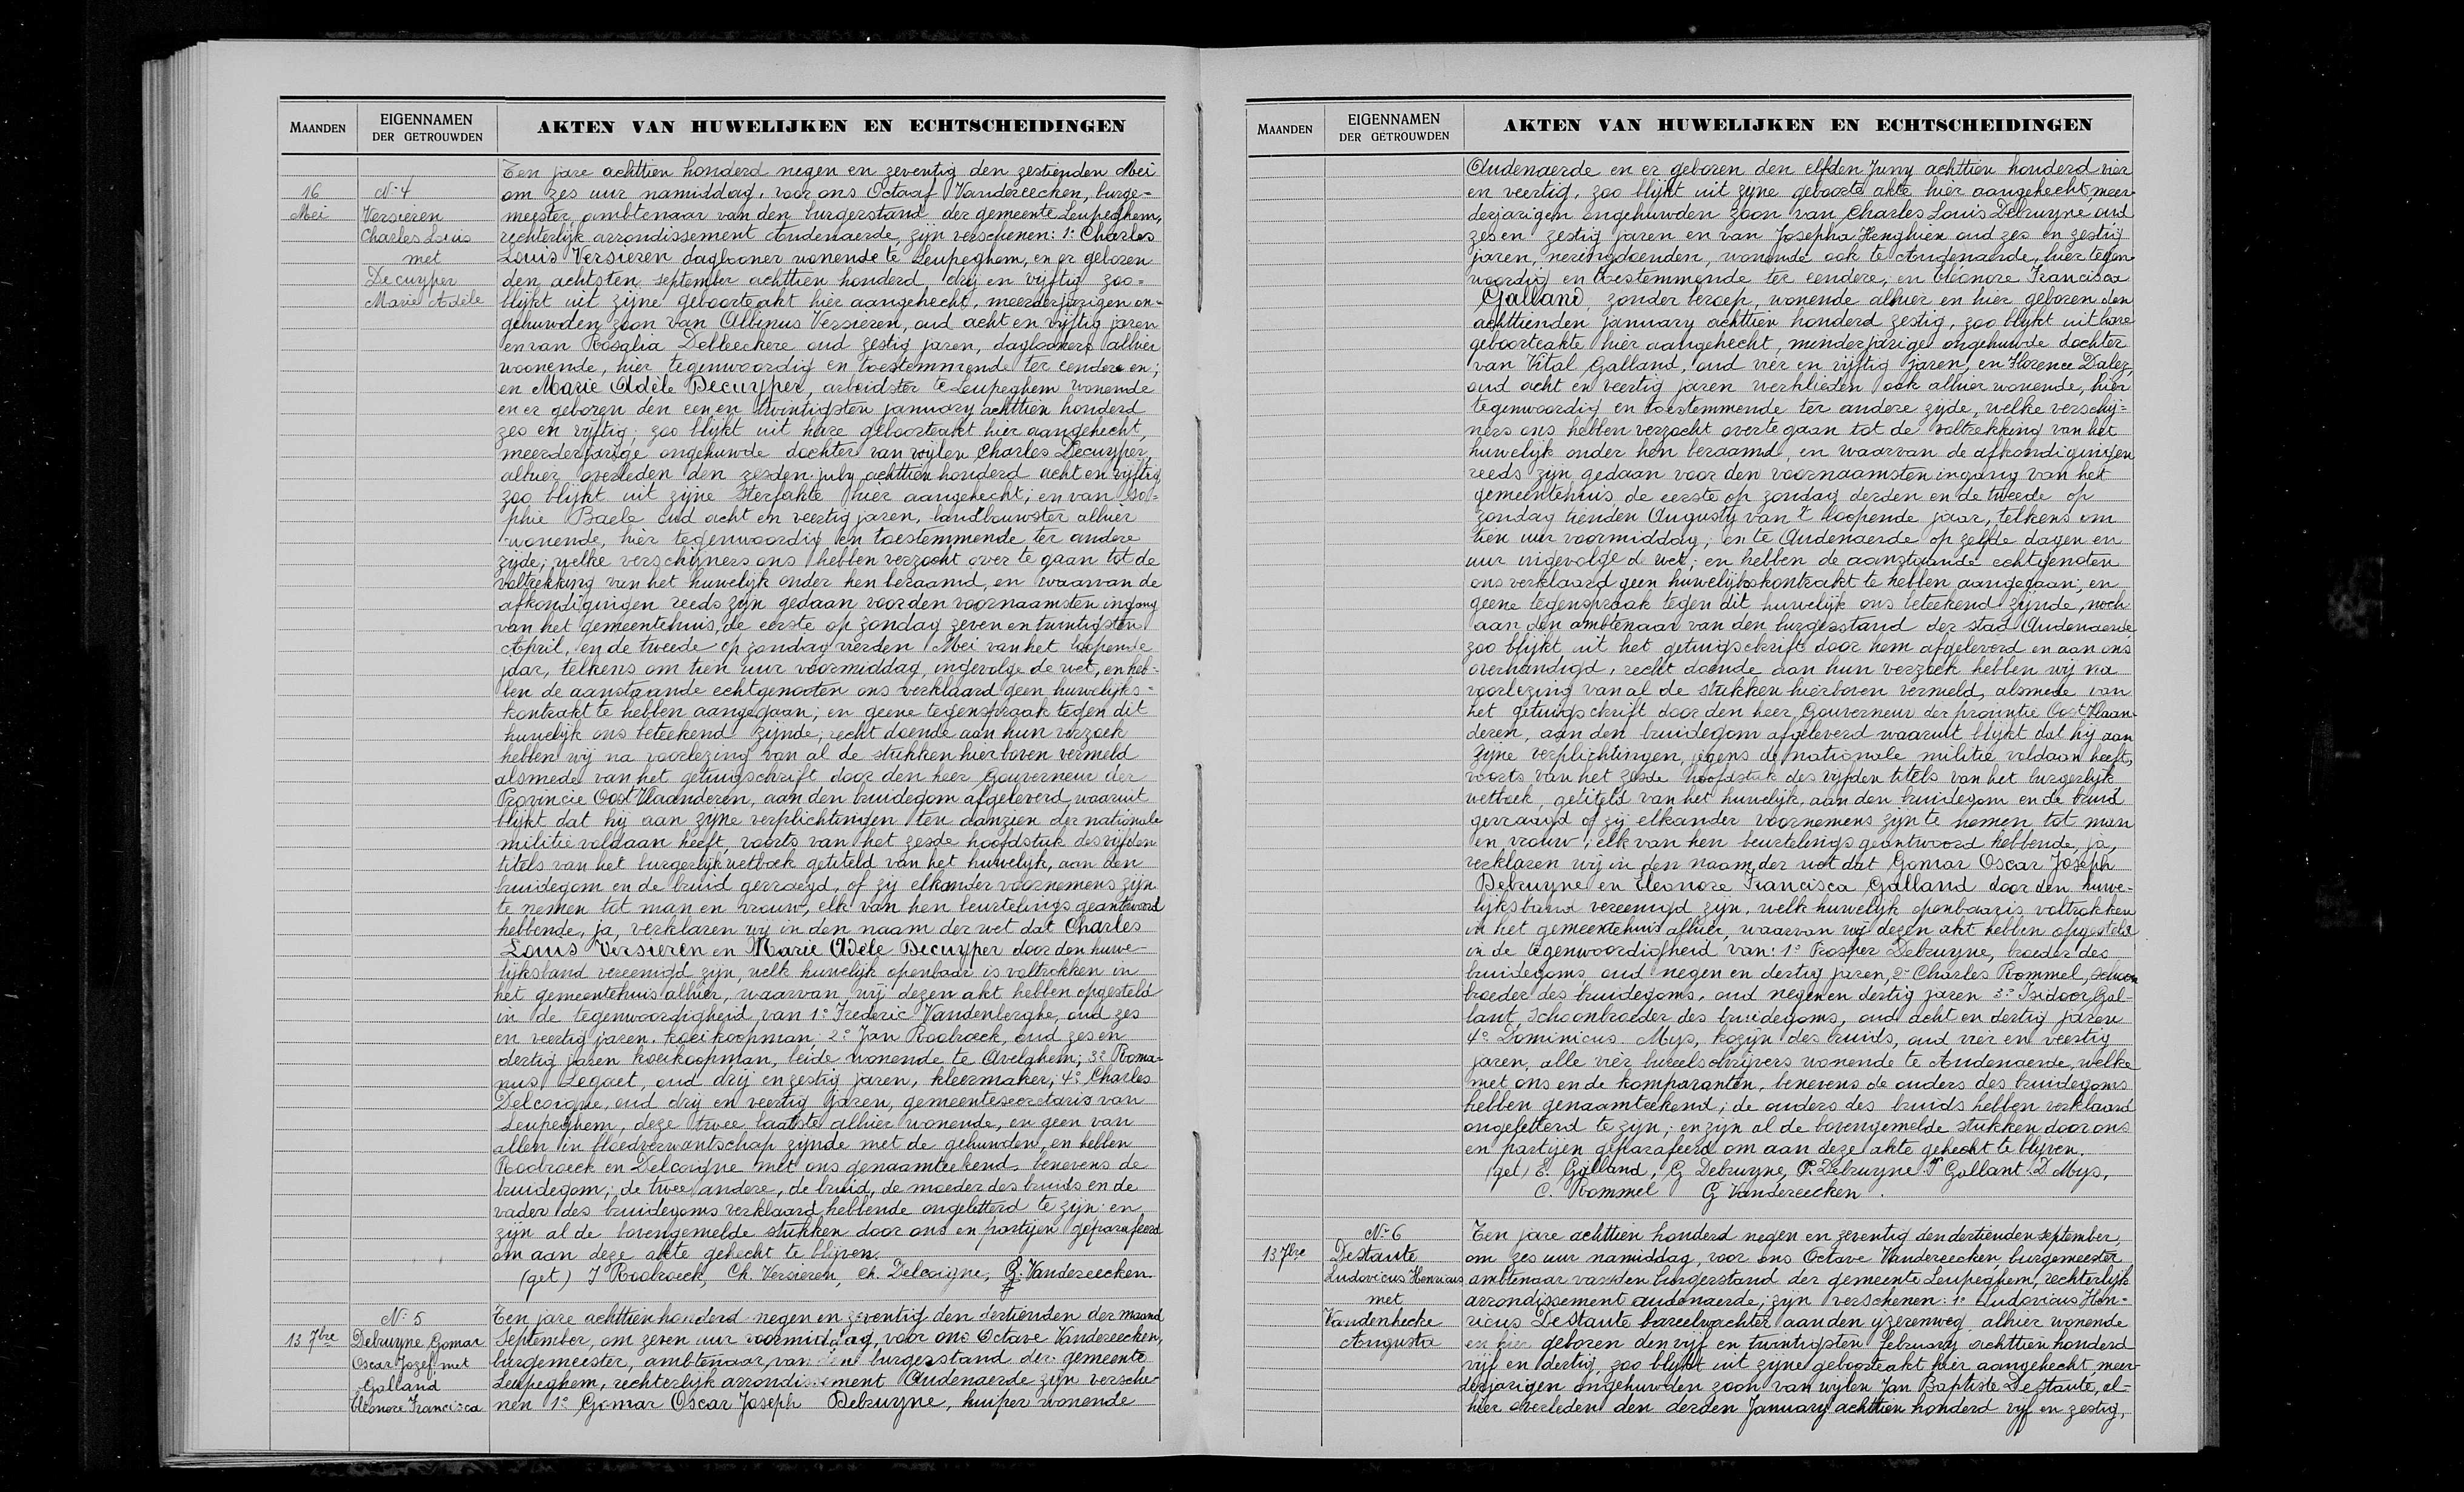 MAANDEN
EIGENNAMEN
DER GETROUWDEN
AKTEN VAN HUWELIJKEN EN ECHTSCHEIDINGEN
16
Mei
No 4
Versieren
Charles Louis
met
Decuyper
Marie Adèle
Ten jare achttien honderd negen en zeventig den zestienden Mei
om zes uur namiddag, voor ons Octaaf Vandereecken, burge=
meester, ambtenaar van den burgerstand der gemeente Leupeghem,
rechterlijk arrondissement Audenaerde, zijn verschenen: 1o Charles
Louis Versieren daglooner wonende te Leupeghem, en er geboren
den achtsten september achttien honderd drij en vijftig zoo=
blijkt uit zijne geboorteakt hier aangehecht, meerderjarigen on-
gehuwden zoon van Albinus Versieren, oud acht en vijftig jaren
en van Rosalia Delleeckere oud zestig jaren, daglooners alhier
woonende, hier tegenwoordig en toestemmende ter eendere en;
en Marie Adèle Decuyper, arbeidster te Leupeghem wonende
en er geboren den een en twintigsten january achttien honderd
zes en vijftig; zoo blijkt uit hare geboorteakt hier aangehecht,
meerderjarige ongehuwde dochter van wijlen Charles Decuyper,
alhier overleden den zesden july achttien honderd acht en vijftig
zoo blijkt uit zijne sterfakte hier aangehecht; en van So=
phie Baele oud acht en veertig jaren, landbouwster alhier
wonende, hier tegenwoordig en toestemmende ter andere
zijde; welke verschijners ons hebben verzocht over te gaan tot de
voltrekking van het huwelijk onder hen beraamd, en waarvan de
afkondigingen reeds zijn gedaan voor den voornaamsten ingang
van het gemeentehuis, de eerste op zondag zeven en twintigsten
April, en de tweede op zondag vierden Mei van het loopende
jaar, telkens om tien uur voormiddag, ingevolge de wet, en heb=
ben de aanstaande echtgenooten ons verklaard geen huwelijks=
kontrakt te hebben aangegaan; en geene tegenspraak tegen dit
huwelijk ons beteekend zijnde; recht doende aan hun verzoek
hebben wij na voorlezing van al de stukken hierboven vermeld
alsmede van het getuigschrift door den heer Gouverneur der
Provincie Oost Vlaanderen, aan den bruidegom afgeleverd waaruit
blijkt dat hij aan zijne verplichtingen ten aanzien der nationale
militie voldaan heeft, voorts van het zesde hoofdstuk des vijfden
titels van het burgerlijk wetboek getiteld van het huwelijk, aan den
bruidegom en de bruid gevraegd, of zij elkander voornemens zijn
te nemen tot man en vrouw, elk van hen beurtelings geantwoord
hebbende, ja, verklaren wij in den naam der wet dat Charles
Louis Versieren en Marie Adele Decuyper door den huwe-
lijksband vereenigd zijn, welk huwelijk openbaar is voltrokken in
het gemeentehuis alhier, waarvan wij dezen akt hebben opgesteld
in de tegenwoordigheid van 1o Frederic Vandenberghe, oud zes
en veertig jaren, koeikoopman, 2o Jan Roobroeck, oud zes en
dertig jaren koeikoopman, beide wonende te Avelghem; 3o Roma-
nus Legaet, oud drij en zestig jaren, kleermaker; 4o Charles
Delcoigne, oud drij en veertig jaren, gemeentesecretaris van
Leupeghem, deze twee laatste alhier wonende, en geen van
allen in bloedverwantschap zijnde met de gehuwden, en hebben
Roobroeck en Delcoigne met ons genaamteekend, benevens de
bruidegom; de twee andere, de bruid, de moeder des bruids en de
vader des bruidegoms verklaard hebbende ongeletterd te zijn: en
zijn al de bovengemelde stukken door ons en partijen geparafeerd
om aan deze akte gehecht te blijven.
(get) J Roobroeck, Ch. Versieren, Ch. Delcoigne, G. Vandereecken.
13 7bre
No 5
Debruyne Gomar
Oscar Jozef met
Galland
Eleonore Francisca
Ten jare achttien honderd negen en zeventig den dertienden der maand
September, om zeven uur voormiddag, voor ons Octave Vandereecken,
burgemeester, ambtenaar van den burgerstand der gemeente
Leupeghem, rechterlijk arrondissement Audenaerde zijn versche-
nen 1o Gomar Oscar Joseph Debruyne, kuiper wonende
MAANDEN
EIGENNAMEN
DER GETROUWDEN
AKTEN VAN HUWELIJKEN EN ECHTSCHEIDINGEN
Audenaerde en er geboren den elfden Juny achttien honderd vier
en veertig, zoo blijkt uit zijne geboorte akte hier aangehecht, meer-
derjarigen ongehuwden zoon van Charles Louis Debruyne oud
zes en zestig jaren en van Josepha Henghien oud zes en zestig
jaren, neringdoenden, wonende ook te Audenaerde, hier tegen-
woordig en toestemmende ter eendere; en Eleonore Francisca
Galland, zonder beroep, wonende alhier en hier geboren den
achttienden january achttien honderd zestig, zoo blijkt uit hare
geboorteakte hier aangehecht, minderjarige ongehuwde dochter
van Vital Galland, oud vier en vijftig jaren, en Florence Dalez,
oud acht en veertig jaren werklieden ook alhier wonende, hier
tegenwoordig en toestemmende ter andere zijde, welke verschij=
ners ons hebben verzocht over te gaan tot de voltrekking van het
huwelijk onder hen beraamd, en waarvan de afkondigingen
reeds zijn gedaan voor den voornaamsten ingang van het
gemeentehuis de eerste op zondag derden en de tweede op
zondag tienden Augusty van 't loopende jaar, telkens om
tien uur voormiddag, en te Audenaerde op zelfde dagen en
uur ingevolge de wet; en hebben de aanstaande echtgenoten
ons verklaard geen huwelijkskontrakt te hebben aangegaan; en
geene tegenspraak tegen dit huwelijk ons beteekend zijnde, noch
aan den ambtenaar van den burgerstand der stad Audenaerde
zoo blijkt uit het getuigschrift door hem afgeleverd en aan ons
overhandigd, recht doende aan hun verzoek hebben wij na
voorlezing van al de stukken hierboven vermeld, alsmede van
het getuigschrift door den heer Gouverneur der provintie Oost Vlaan-
deren, aan den bruidegom afgeleverd waaruit blijkt dat hij aan
zijne verplichtingen jegens de nationale militie voldaan heeft,
voorts van het zesde hoofdstuk des vijfden titels van het burgerlijk
wetboek, getiteld van het huwelijk, aan den bruidegom en de bruid
gevraagd of zij elkander voornemens zijn te nemen tot man
en vrouw; elk van hen beurtelings geantwoord hebbende, ja,
verklaren wij in den naam der wet dat Gomar Oscar Joseph
Debruyne en Eleonore Francisca Galland door den huwe-
lijksband vereenigd zijn, welk huwelijk openbaar is voltrokken
in het gemeentehuis alhier, waarvan wij dezen akt hebben opgesteld
in de tegenwoordigheid van: 1o Prosper Debruyne, broeder des
bruidegoms oud negen en dertig jaren, 2o Charles Rommel, schoon
broeder des bruidegoms, oud negen en dertig jaren 3o Isidoor Gal-
lant, schoonbroeder des bruidegoms, oud acht en dertig jaren
4o Dominicus Mys, kozijn des bruids, oud vier en veertig
jaren, alle vier bureelschrijvers wonende te Audenaerde, welke
met ons en de komparanten, benevens de ouders des bruidegoms
hebben genaamteekend; de ouders des bruids hebben verklaard
ongeletterd te zijn; en zijn al de bovengemelde stukken door ons
en partijen geparafeerd om aan deze akte gehecht te blijven.
(get) E. Galland, G Debruyne, P. Debruyne I Gallant D. Mys,
C. Rommel G Vandereecken.
13 7bre
No 6
Destaute
Ludovicus Henricus
met
Vandenhecke
Augusta
Ten jare achttien honderd negen en zeventig den dertienden september,
om zes uur namiddag, voor ons Octave Vandereecken, burgemeester
ambtenaar van den burgerstand der gemeente Leupeghem, rechterlijk
arrondissement audenaerde; zijn verschenen: 1o Ludovicus Hen-
ricus Destaute bareelwachter aan den yzerenweg alhier wonende
en hier geboren den vijf en twintigsten february achttien honderd
vijf en dertig, zoo blijkt uit zijne geboorteakt hier aangehecht, meer-
derjarigen ongehuwden zoon van wijlen Jan Baptiste Destaute, al-
hier overleden den derden January achttien honderd vijf en zestig,